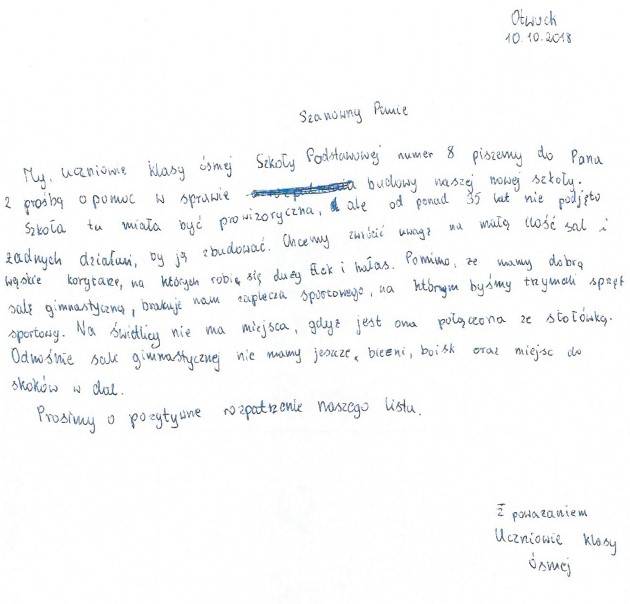 Otwock
10.10.2018
Szanowny Panie
My, uczniowie klasy ósmej Szkoły Podstawowej numer 8 piszemy do Pana
z prośbą o pomoc w sprawie budowy naszej nowej szkoły.
Szkoła ta miała być prowizoryczna, ale od ponad 35 lat nie podjęto
żadnych działań, by ją zbudować. Chcemy zwrócić uwagę na małą ilość sal i
wąskie korytarze, na których robią się duży tłok i hałas. Pomimo, że mamy dobrą
salę gimnastyczną, brakuje nam zaplecza sportowego, na którym byśmy trzymali sprzęt
sportowy. Na świetlicy nie ma miejsca, gdyż jest ona połączona ze stołówką.
Odnośnie sali gimnastycznej nie mamy jeszcze, bieżni, boisk oraz miejsc do
skoków w dal.
Prosimy o pozytywne rozpatrzenie naszego listu.
Z poważaniem
Uczniowie klasy
ósmej